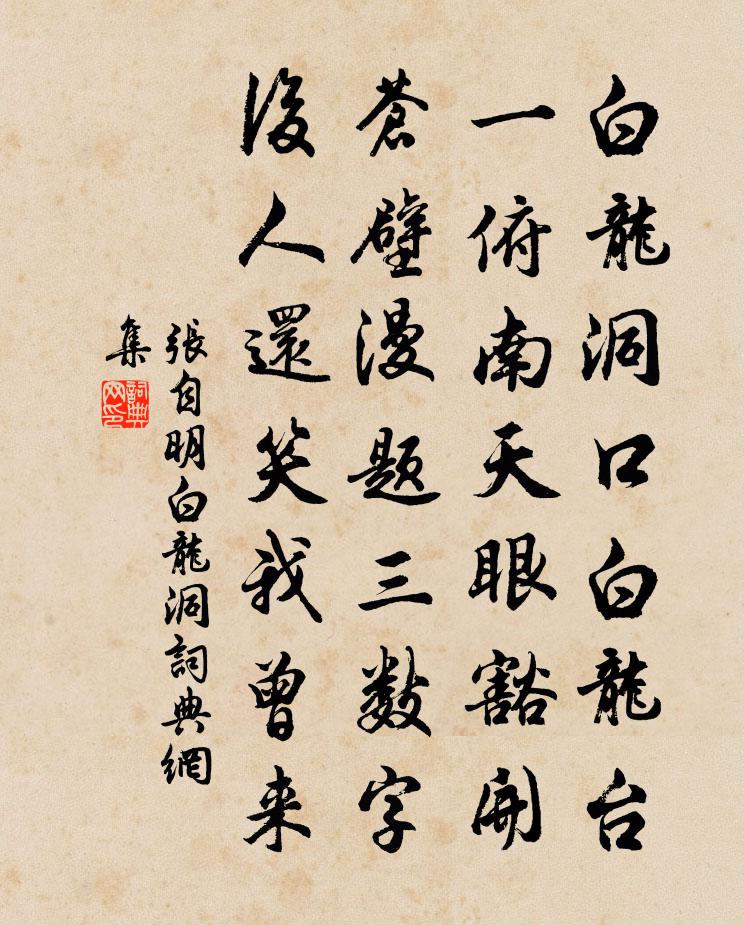 白龍洞口白龍台
一俯南天眼豁開
蒼壁漫題三數字
後人還笑我曾来
張自明白龍洞詞典網
集
詞典
网印